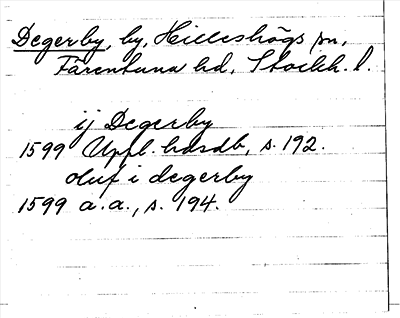 Degerby, by, Hilleshögs sn,
Färentuna hd, Stockh. l.
ij Degerby
1599 Uppl. handb, s. 192.
oluf i degerby
1599 a.a., s. 194.